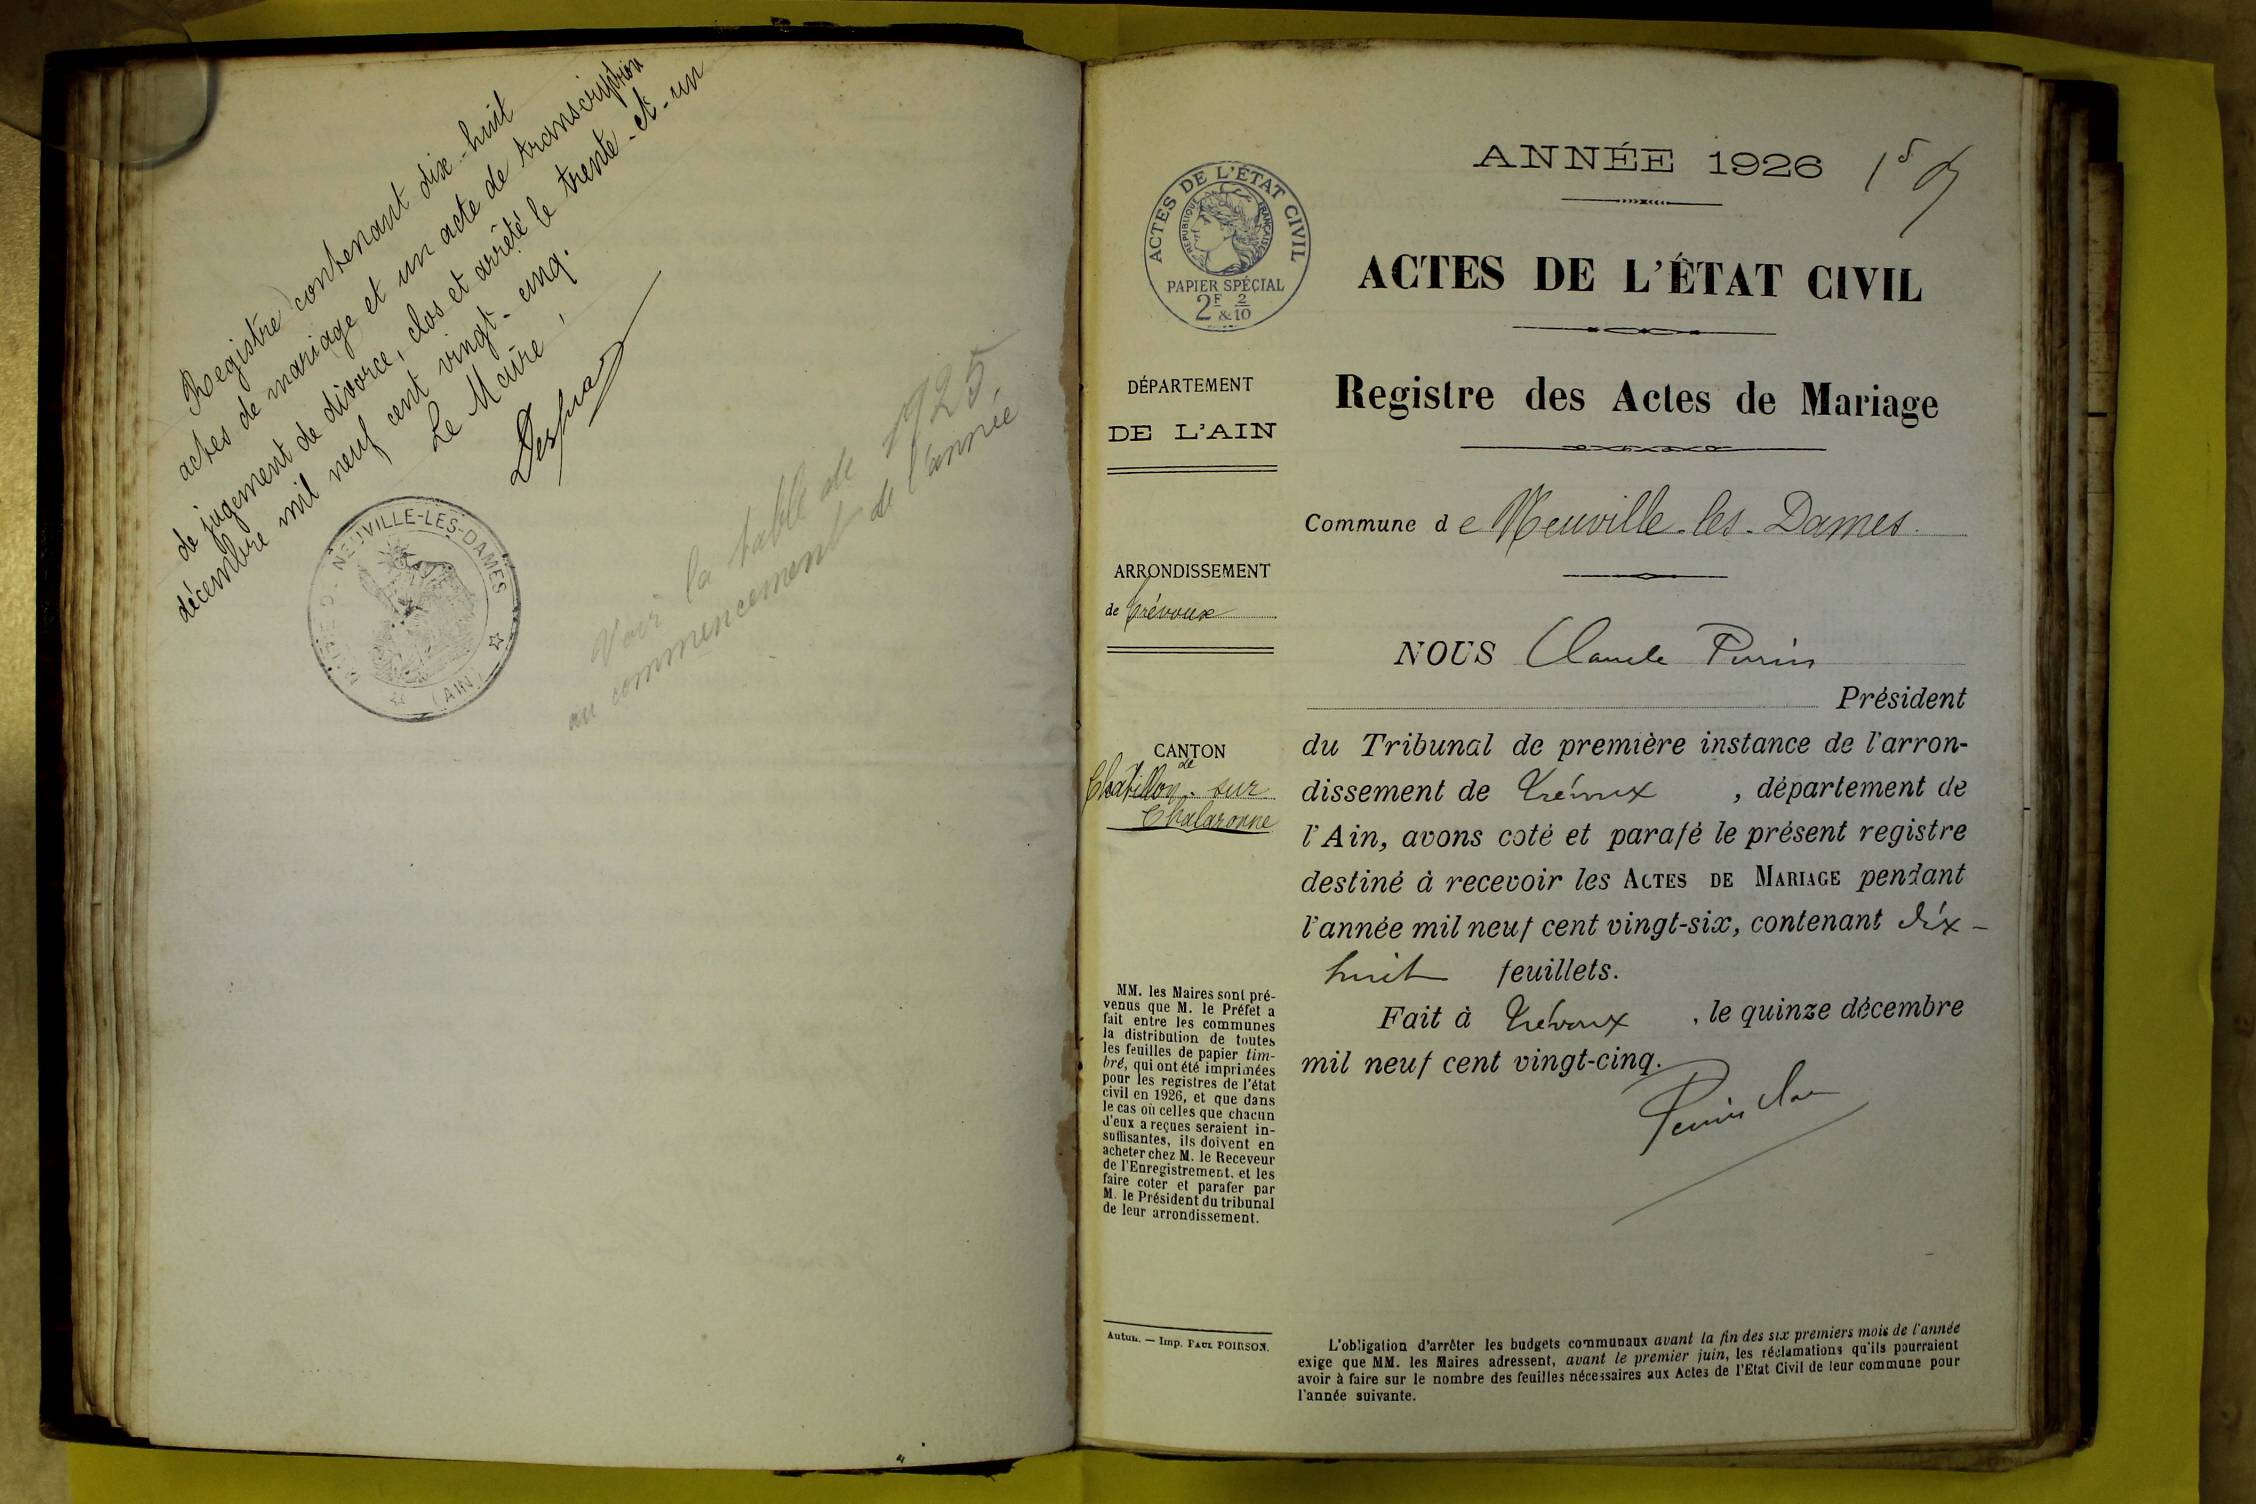 Registre contenant dix-huit
actes de mariage et un acte de transcription
de jugement de divorce, clos et arrêté le trente-et-un
décembre mil neuf cent vingt-cinq.
Le Maire,
NEUVILLE-LES-DAMES
(AIN)
Voir la table de 1925
au commencement de l'année
ANNÉE 1926
ACTES DE L'ÉTAT CIVIL
RÉPUBLIQUE FRANÇAISE
PAPIER SPÉCIAL
2F & 2/10
ACTES DE L'ÉTAT CIVIL
Registre des Actes de Mariage
DÉPARTEMENT
DE L'AIN
Commune de Neuville-les-Dames.
ARRONDISSEMENT
de Trévoux
CANTON
de
Chatillon-sur
Chalaronne
NOUS Claude
Président
du Tribunal de première instance de l'arron-
dissement de Trévoux, département de
l'Ain, avons coté et parafé le présent registre
destiné à recevoir les ACTES DE MARIAGE pendant
l'année mil neuf cent vingt-six, contenant dix-
huit feuillets.
Fait à Trévoux, le quinze décembre
mil neuf cent vingt-cinq.
MM. les Maires sont pré-
venus que M. le Préfet a
fait entre les communes
la distribution de toutes
les feuilles de papier tim-
bré, qui ont été imprimées
pour les registres de l'état
civil en 1926, et que dans
le cas où celles que chacun
d'eux a reçues seraient in-
suffisantes, ils doivent en
acheter chez M. le Receveur
de l'Enregistrement, et les
faire coter et parafer par
M. le Président du tribunal
de leur arrondissement.
Autun. — Imp. PAUL POIRSON.
L'obligation d'arrêter les budgets communaux avant la fin des six premiers mois de l'année
exige que MM. les Maires adressent, avant le premier juin, les réclamations qu'ils pourraient
avoir à faire sur le nombre des feuilles nécessaires aux Actes de l'Etat Civil de leur commune pour
l'année suivante.